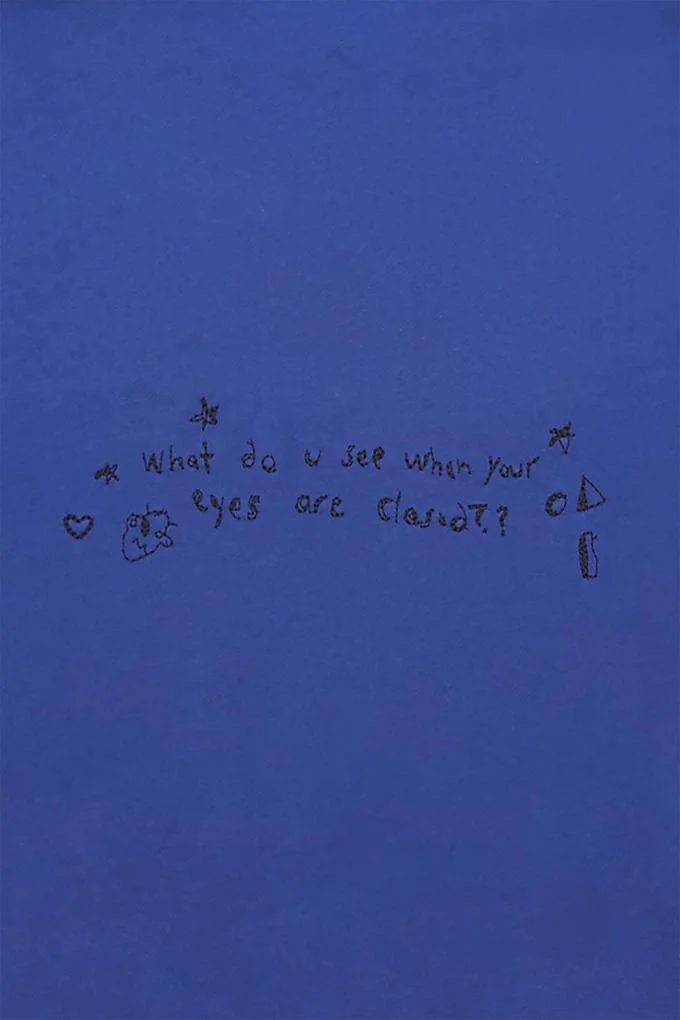 What do u see when your
eyes are closed??